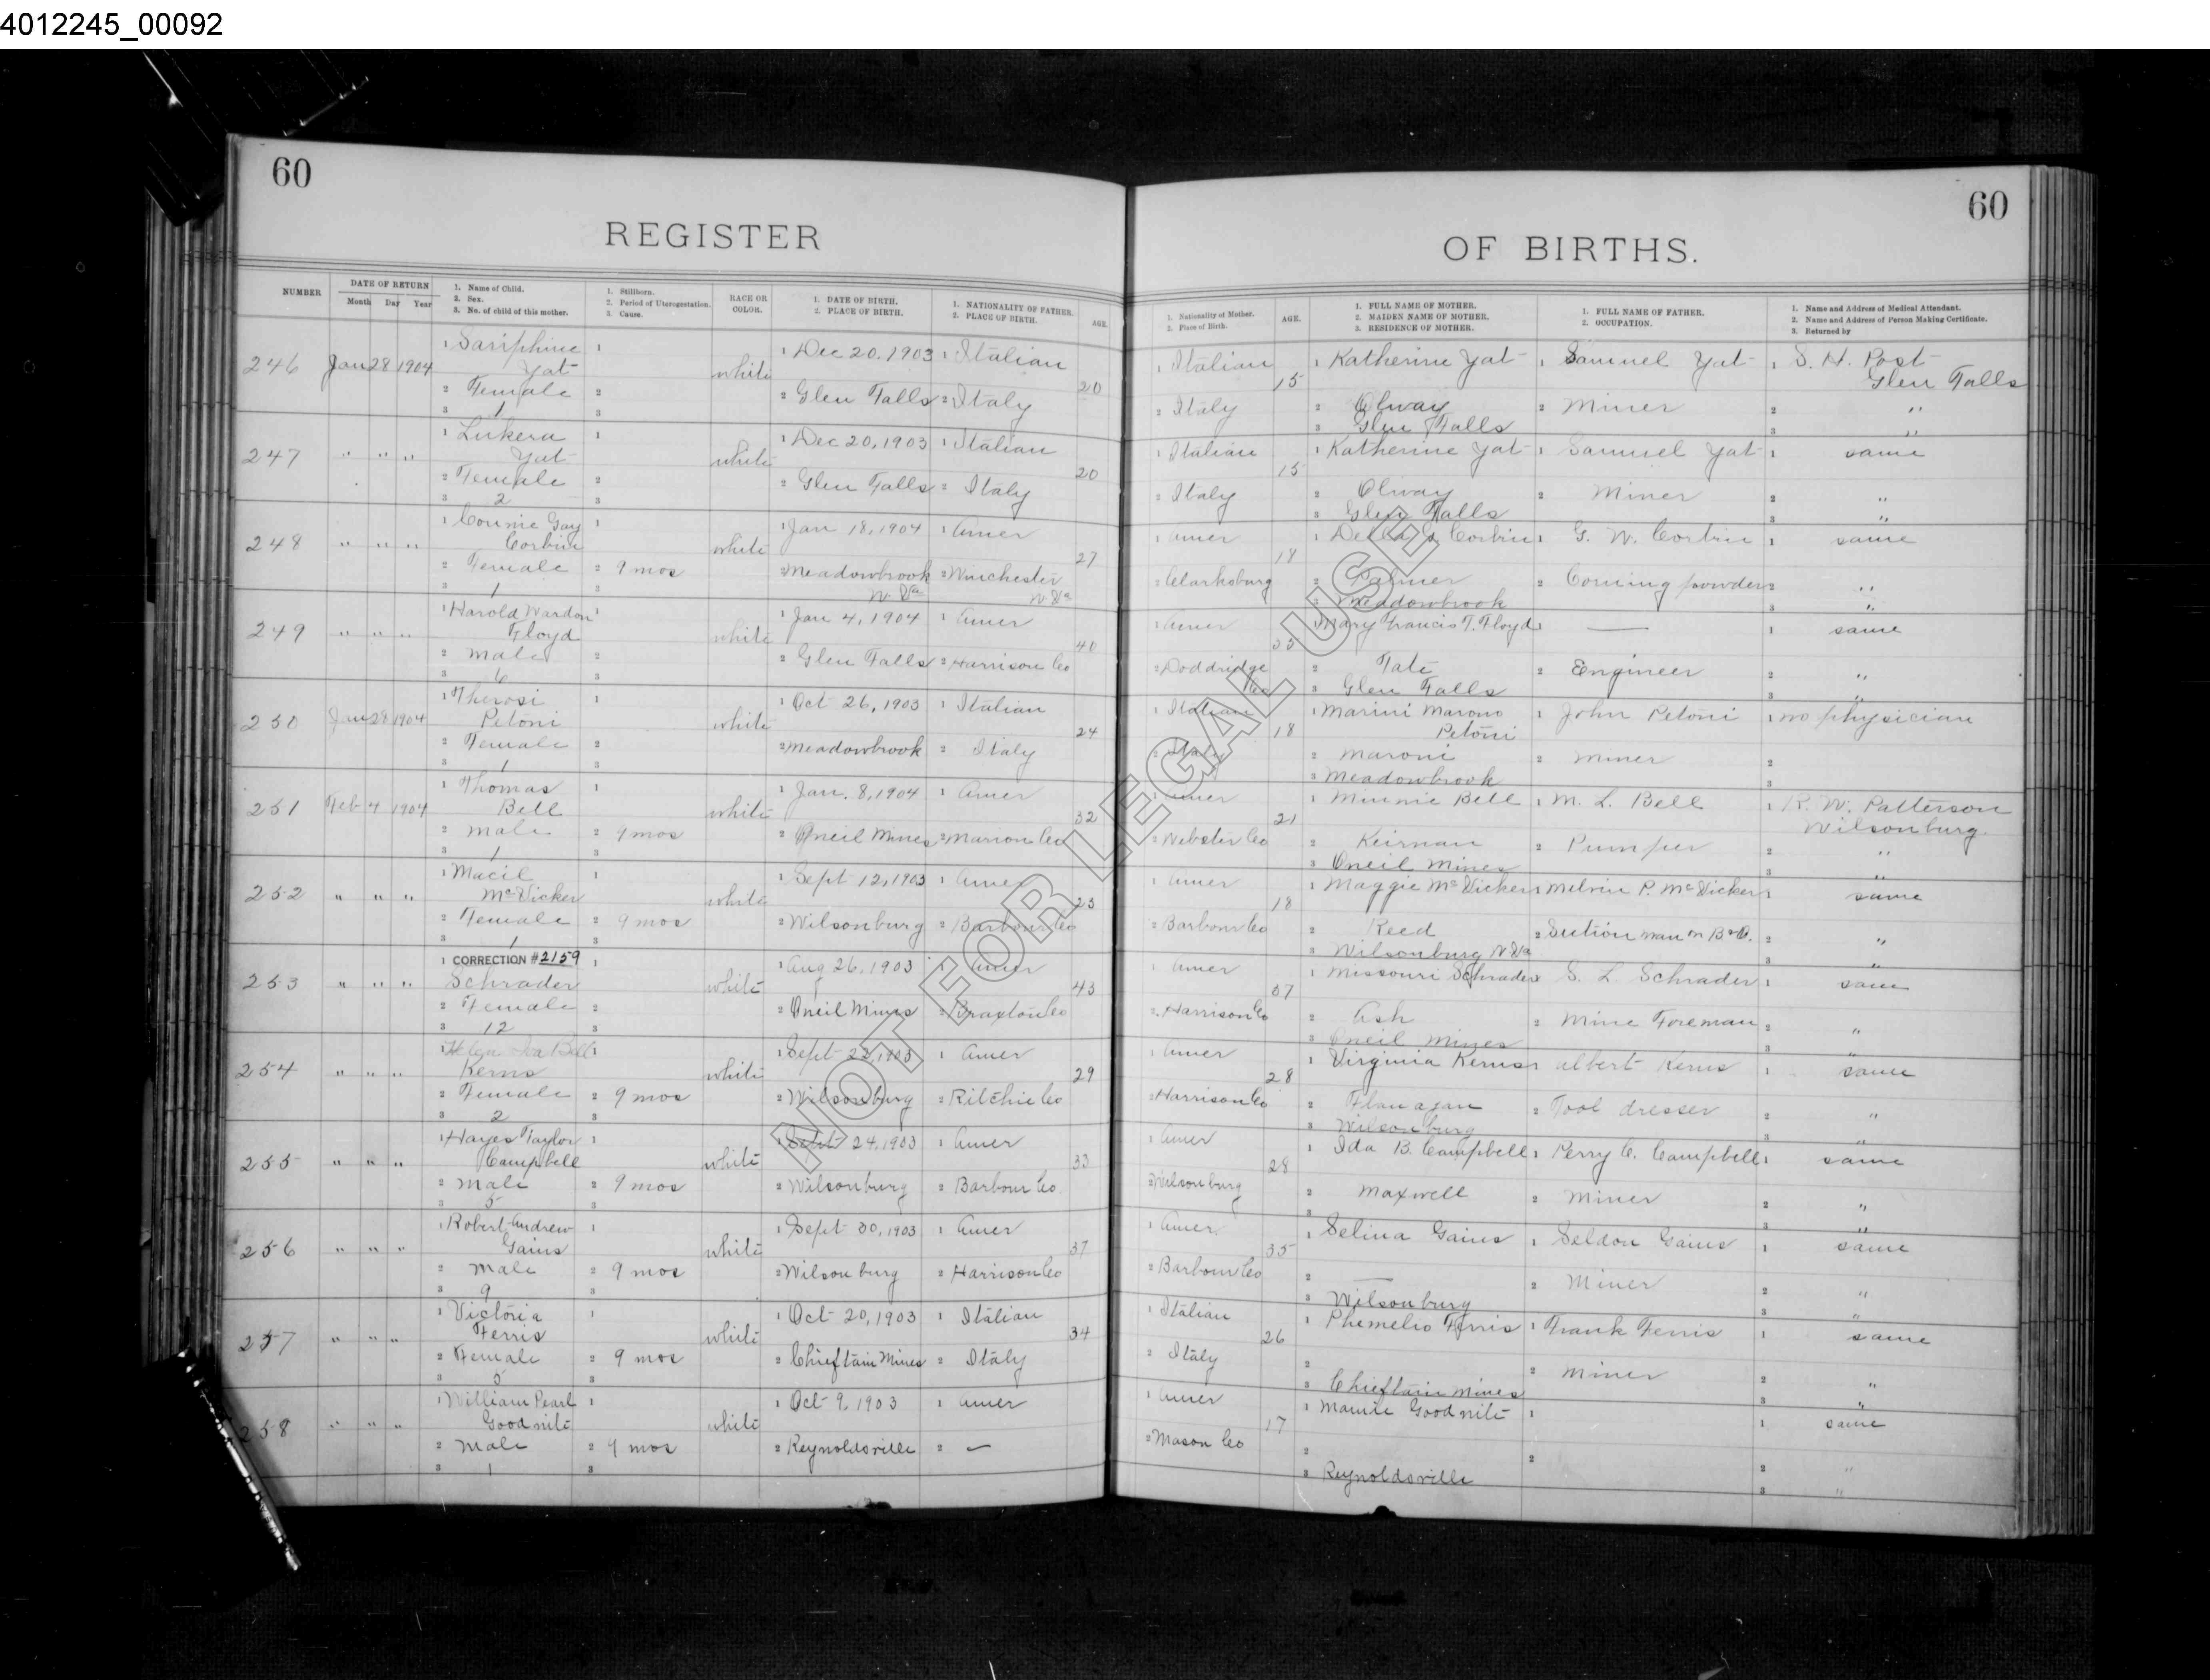 4012245_00092
60
REGISTER
NUMBER
DATE OF RETURN
Month Day Year
1. Name of Child.
2. Sex.
3. No. of child of this mother.
1. Stillborn.
2. Period of Uterogestation.
3. Cause.
RACE OR COLOR.
1. DATE OF BIRTH.
2. PLACE OF BIRTH.
1. NATIONALITY OF FATHER.
2. PLACE OF BIRTH.
AGE.
60
OF BIRTHS.
1. Nationality of Mother.
2. Place of Birth.
AGE.
1. FULL NAME OF MOTHER.
2. MAIDEN NAME OF MOTHER.
3. RESIDENCE OF MOTHER.
1. FULL NAME OF FATHER.
2. OCCUPATION.
1. Name and Address of Medical Attendant.
2. Name and Address of Person Making Certificate.
3. Returned by
246 Jan 28 1904 1 Sariphine Yat 1 white 1 Dec 20, 1903 1 Italian 20 1 Italian 15 1 Katherine Yat 1 Samuel Yat 1 S. H. Post Glen Falls
2 Female 2 2 Glen Falls 2 Italy 2 Italy 2 Olway 2 Miner 2 "
3 1 3 3 Glen Falls 3 "
247 " " " 1 Lukera Yat 1 white 1 Dec 20, 1903 1 Italian 20 1 Italian 15 1 Katherine Yat 1 Samuel Yat 1 same
2 Female 2 2 Glen Falls 2 Italy 2 Italy 2 Olway 2 Miner 2 "
3 2 3 3 Glen Falls 3 "
248 " " " 1 Connie Gay Corbin 1 white 1 Jan 18, 1904 1 Amer 27 1 Amer 18 1 Della G Corbin 1 G. W. Corbin 1 same
2 Female 2 9 mos 2 Meadowbrook W. Va 2 Winchester W. Va 2 Clarksburg 2 Palmer 2 Corning powder 2 "
3 1 3 3 Meadowbrook 3 "
249 " " " 1 Harold Wardon Floyd 1 white 1 Jan 4, 1904 1 Amer 40 1 Amer 35 Mary Francis T. Floyd 1 — 1 same
2 Male 2 2 Glen Falls 2 Harrison Co 2 Doddridge Co 2 Tate 2 Engineer 2 "
3 6 3 3 Glen Falls 3 "
250 Jan 28 1904 1 Therosi Petoni 1 white 1 Oct 26, 1903 1 Italian 24 1 Italian 18 1 Marini Marono Petoni 1 John Petoni 1 no physician
2 Female 2 2 Meadowbrook 2 Italy 2 Italy 2 Maroni 2 Miner 2
3 1 3 3 Meadowbrook 3
251 Feb 4 1904 1 Thomas Bell 1 white 1 Jan. 8, 1904 1 Amer 32 1 Amer 21 1 Minnie Bell 1 M. L. Bell 1 R. W. Patterson Wilsonburg
2 Male 2 9 mos 2 Oneil Mines 2 Marion Co 2 Webster Co 2 Keirnan 2 Pumper 2 "
3 1 3 3 Oneil Mines 3 "
252 " " " 1 Macil McVicker 1 white 1 Sept 12, 1903 1 Amer 23 1 Amer 18 1 Maggie McVicker 1 Melvin P. McVicker 1 same
2 Female 2 9 mos 2 Wilsonburg 2 Barbour Co 2 Barbour Co 2 Reed 2 Section man on B&O. 2 "
3 1 3 3 Wilsonburg W. Va 3 "
253 " " " 1 CORRECTION #2159 Schrader 1 white 1 Aug 26, 1903 1 Amer 43 1 Amer 37 1 Missouri Schrader 1 S. L. Schrader 1 same
2 Female 2 2 Oneil Mines 2 Braxton Co 2 Harrison Co 2 Ash 2 Mine Foreman 2 "
3 12 3 3 Oneil Mines 3 "
254 " " " 1 Helen Iva Bell Kerns 1 white 1 Sept 22, 1903 1 Amer 29 1 Amer 28 1 Virginia Kerns 1 Albert Kerns 1 same
2 Female 2 9 mos 2 Wilsonburg 2 Ritchie Co 2 Harrison Co 2 Flanagan 2 Tool dresser 2 "
3 2 3 3 Wilsonburg 3 "
255 " " " 1 Hayes Taylor Campbell 1 white 1 Sept 24, 1903 1 Amer 33 1 Amer 28 1 Ida B. Campbell 1 Perry C. Campbell 1 same
2 Male 2 9 mos 2 Wilsonburg 2 Barbour Co 2 Wilsonburg 2 Maxwell 2 Miner 2 "
3 5 3 3 3 "
256 " " " 1 Robert Andrew Gains 1 white 1 Sept 30, 1903 1 Amer 37 1 Amer. 35 1 Selina Gains 1 Seldon Gains 1 same
2 Male 2 9 mos 2 Wilsonburg 2 Harrison Co 2 Barbour Co 2 — 2 Miner 2 "
3 9 3 3 Wilsonburg 3 "
257 " " " 1 Victoria Ferris 1 white 1 Oct 20, 1903 1 Italian 34 1 Italian 26 1 Phemelio Ferris 1 Frank Ferris 1 same
2 Female 2 9 mos 2 Chieftain Mines 2 Italy 2 Italy 2 2 Miner 2 "
3 5 3 3 Chieftain Mines 3 "
258 " " " 1 William Pearl Goodnite 1 white 1 Oct 9, 1903 1 Amer 1 Amer 17 1 Mamie Goodnite 1 1 same
2 Male 2 9 mos 2 Reynoldsville 2 — 2 Mason Co 2 2 2 "
3 1 3 3 Reynoldsville 3 "
NOT FOR LEGAL USE